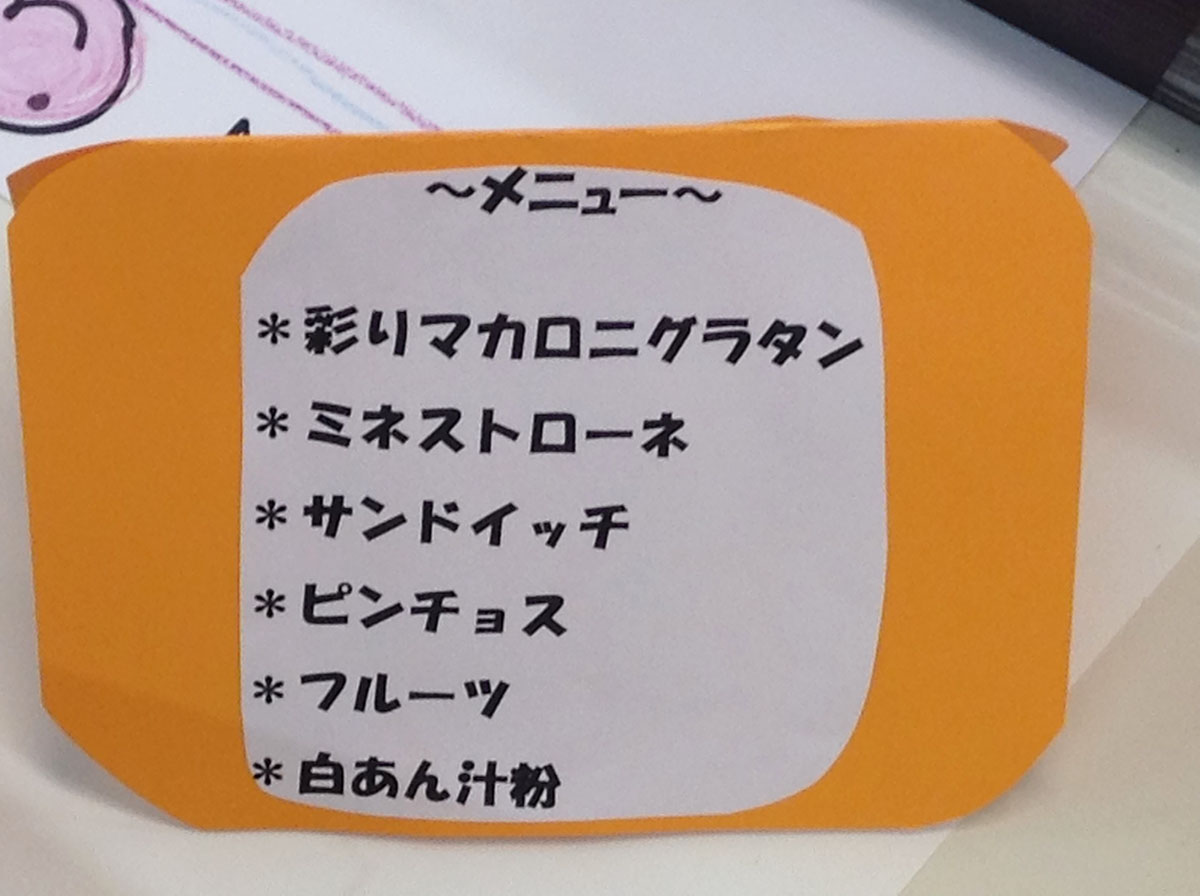 ～メニュー～
＊彩りマカロニグラタン
＊ミネストローネ
＊サンドイッチ
＊ピンチョス
＊フルーツ
＊白あん汁粉